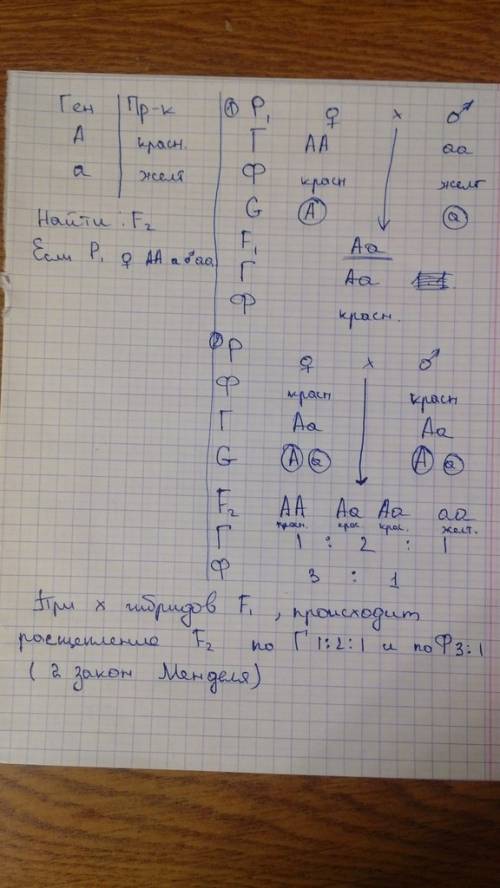 Ген Пр-к
А красн.
а желт
Найти: F2
Если P1 ♀ АА а ♂ аа
① P1 ♀ x ♂
Г АА аа
Ф красн желт
G А а
F1 Аа
Г Аа
Ф красн.
② P ♀ x ♂
Ф красн красн
Г Аа Аа
G А а А а
F2 АА Аа Аа аа
красн. крас крас. желт.
Г 1 : 2 : 1
Ф 3 : 1
При х гибридов F1, происходит
росщепление F2 по Г 1:2:1 и по Ф 3:1
(2 закон Менделя)